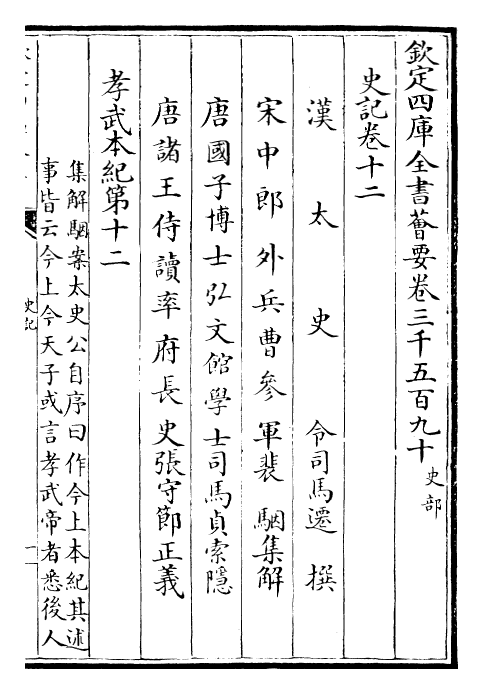 欽定四庫全書薈要卷三千五百九十
史部
史記卷十二
漢太史令司馬遷撰
宋中郎外兵曹參軍裴駰集解
唐國子博士弘文館學士司馬貞索隱
唐諸王侍讀率府長史張守節正義
孝武本紀第十二
集解駰案太史公自序曰作今上本紀其述
事皆云今上今天子或言孝武帝者悉後人
史記
一